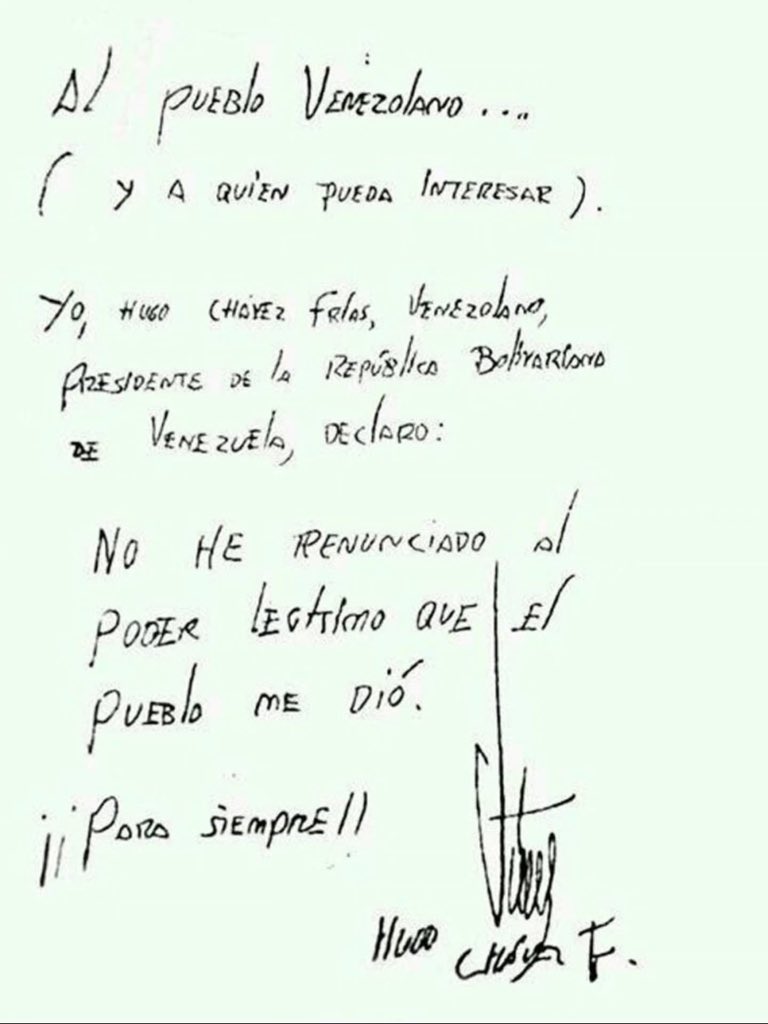 Al pueblo Venezolano....
(y a quien pueda interesar).
Yo, Hugo Chávez Frías, Venezolano,
Presidente de la República Bolivariana
de Venezuela, declaro:
No he renunciado al
poder legítimo que el
pueblo me dió.
¡¡Para siempre!!
Hugo Chávez F.